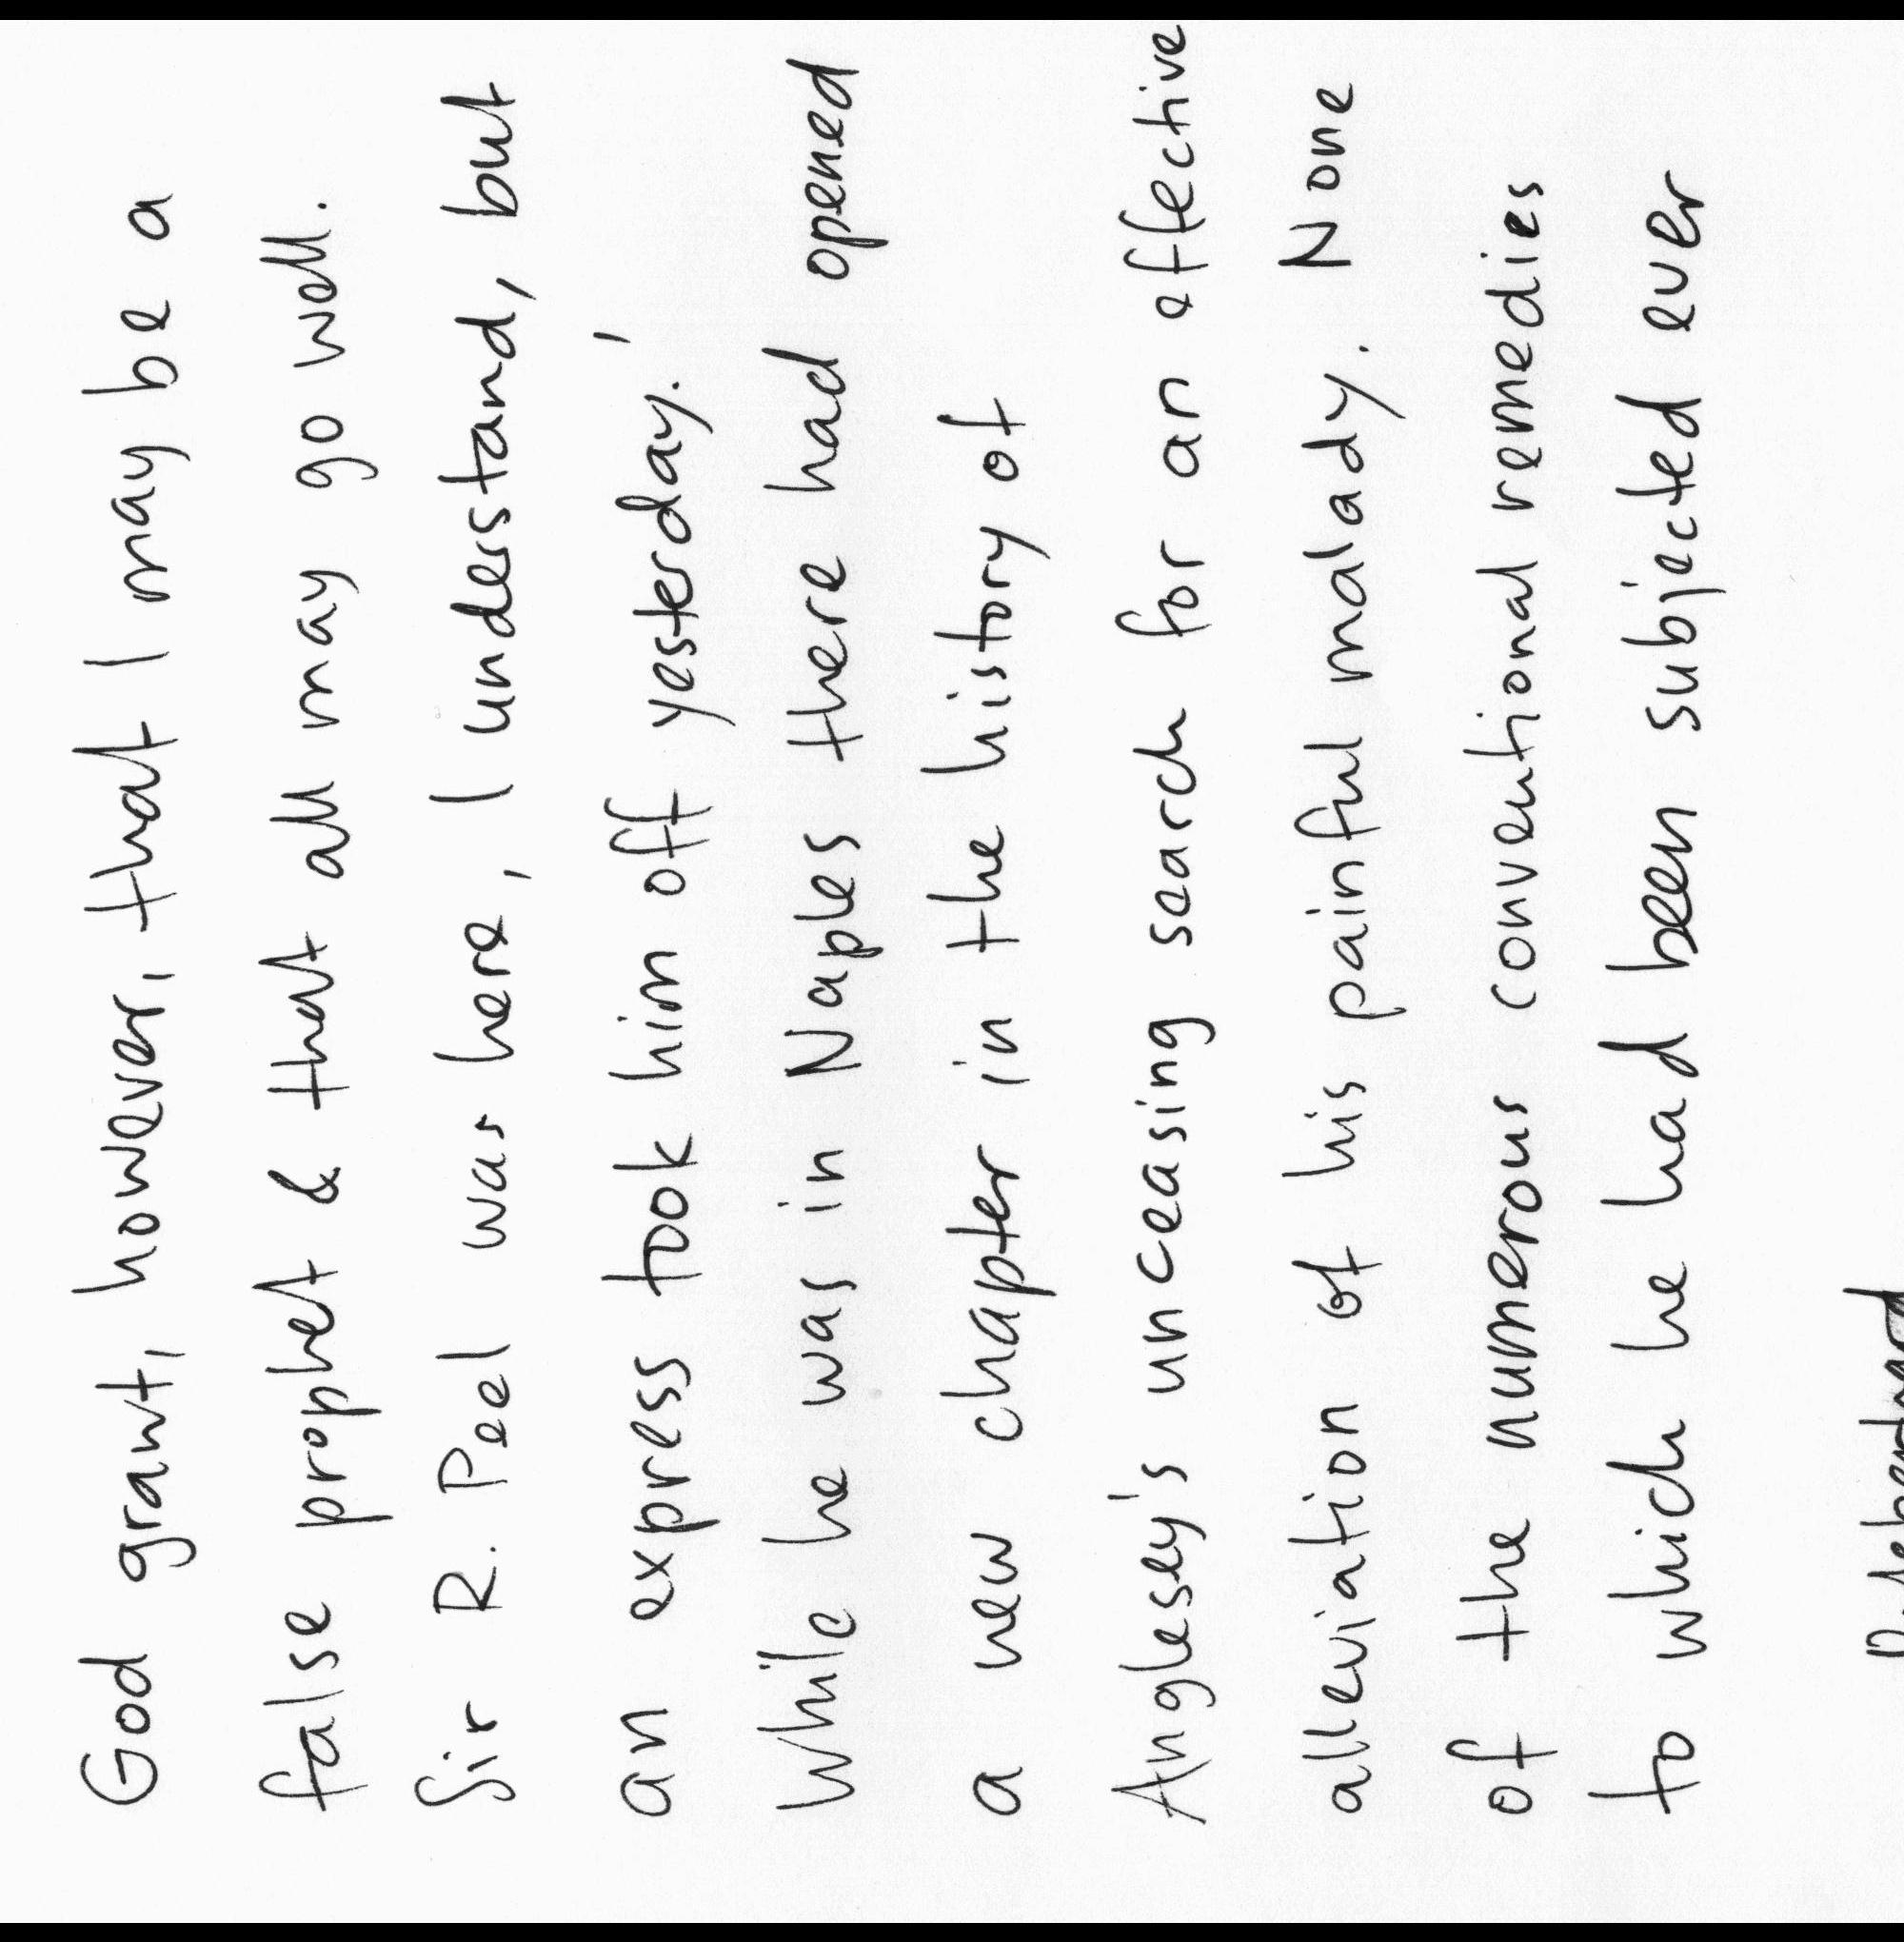 God grant, however, that I may be a
false prophet & that all may go well.
Sir R. Peel was here, I understand, but
an express took him off yesterday.'
While he was in Naples there had opened
a new chapter in the history of
Anglesey's unceasing search for an effective
alleviation of his painful malady. None
of the numerous conventional remedies
to which he had been subjected ever